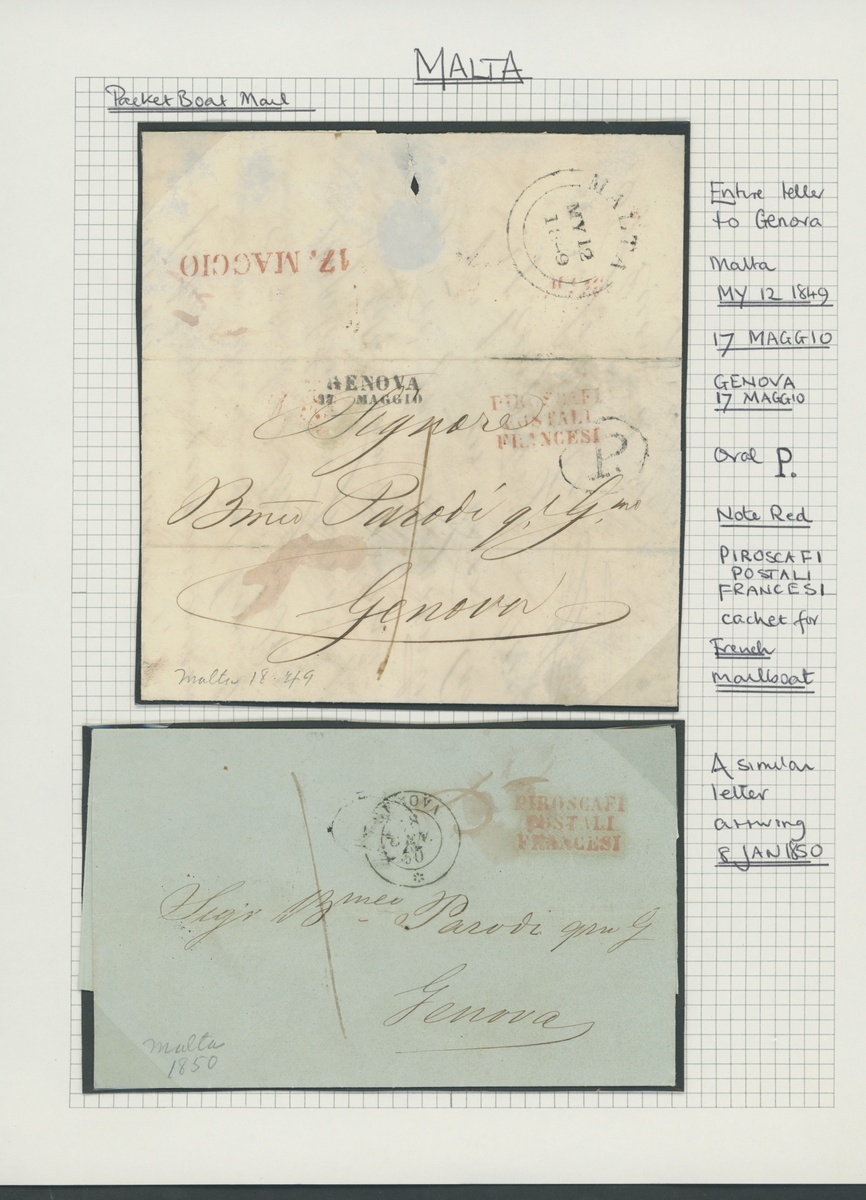 MALTA
Packet Boat Mail
MALTA
MY 12
1849
17. MAGGIO
GENOVA
17 MAGGIO
PIROSCAFI
POSTALI
FRANCESI
P.
Signore
Bmeo Parodi q. Gmo
Genova
Malta 1849
Entire letter
to Genova
Malta
MY 12 1849
17 MAGGIO
GENOVA
17 MAGGIO
Oval P.
Note Red
PIROSCAFI
POSTALI
FRANCESI
cachet for
French
mailboat
GENOVA
8
50
PIROSCAFI
POSTALI
FRANCESI
Sigr Bmeo Parodi qm G
Genova
Malta
1850
A similar
letter
arriving
8 JAN 1850